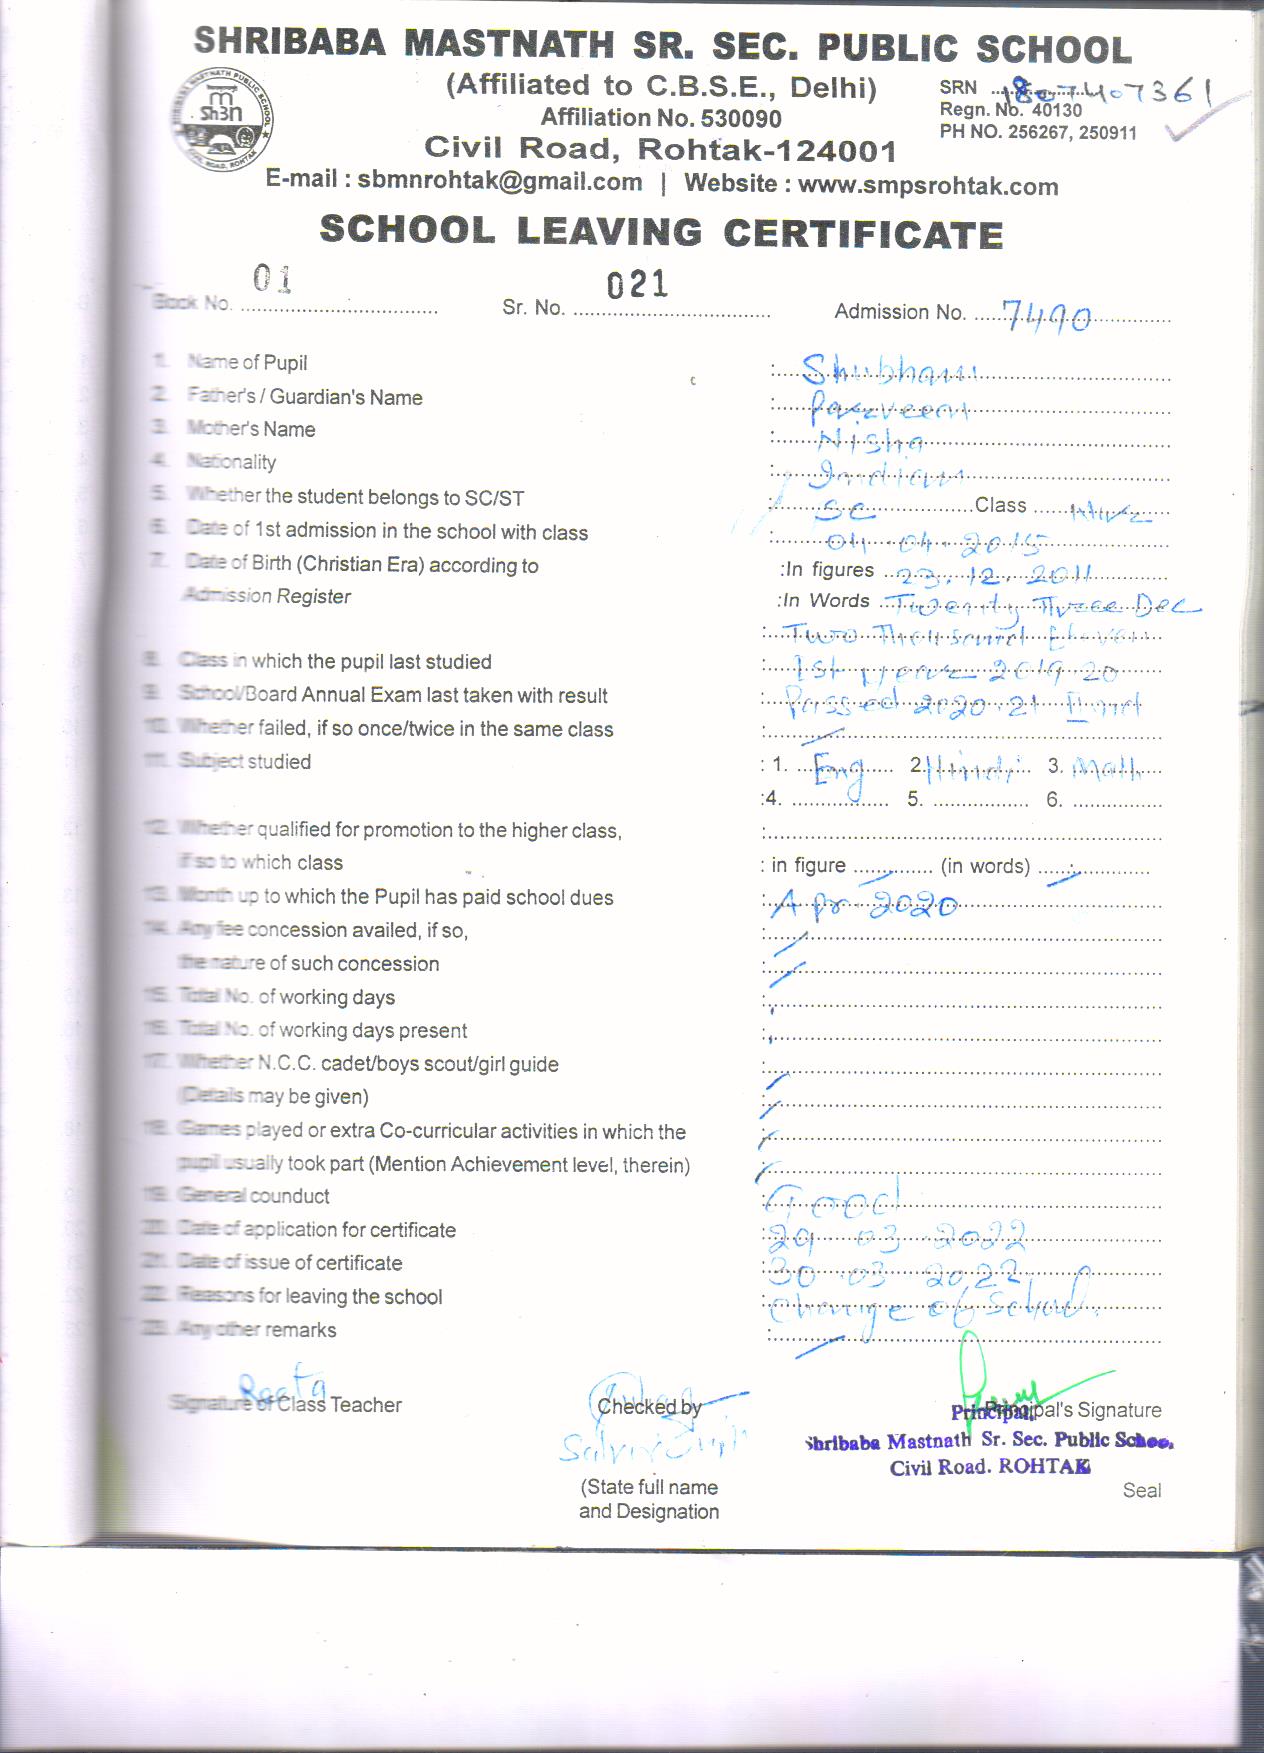 SHRIBABA MASTNATH SR. SEC. PUBLIC SCHOOL
(Affiliated to C.B.S.E., Delhi)
SRN ..1807407361
Affiliation No. 530090
Regn. No. 40130
PH NO. 256267, 250911
Civil Road, Rohtak-124001
E-mail : sbmnrohtak@gmail.com | Website : www.smpsrohtak.com
SCHOOL LEAVING CERTIFICATE
Book No. 01 Sr. No. 021 Admission No. 7490
1. Name of Pupil : Shubham
2. Father's / Guardian's Name : Parveen
3. Mother's Name : Nisha
4. Nationality : Indian
5. Whether the student belongs to SC/ST : SC Class
6. Date of 1st admission in the school with class : 04.04.2015
7. Date of Birth (Christian Era) according to :In figures 23.12.2011
Admission Register :In Words Twenty Three Dec
: Two Thousand Eleven
8. Class in which the pupil last studied : 1st year 2019.20
9. School/Board Annual Exam last taken with result : Passed 2020.21 IInd
10. Whether failed, if so once/twice in the same class :
11. Subject studied : 1. Eng 2. Hindi 3. Math
:4. 5. 6.
12. Whether qualified for promotion to the higher class, :
if so to which class : in figure (in words)
13. Month up to which the Pupil has paid school dues : Apr - 2020
14. Any fee concession availed, if so, :
the nature of such concession :
15. Total No. of working days :
16. Total No. of working days present :
17. Whether N.C.C. cadet/boys scout/girl guide :
(Details may be given) :
18. Games played or extra Co-curricular activities in which the :
pupil usually took part (Mention Achievement level, therein) :
19. General counduct : Good
20. Date of application for certificate : 29 03 2022
21. Date of issue of certificate : 30 03 2022
22. Reasons for leaving the school : Change of School.
23. Any other remarks :
Reeta
Signature of Class Teacher Checked by Principal's Signature
Principal
Shribaba Mastnath Sr. Sec. Public School
Civil Road. ROHTAK
(State full name Seal
and Designation